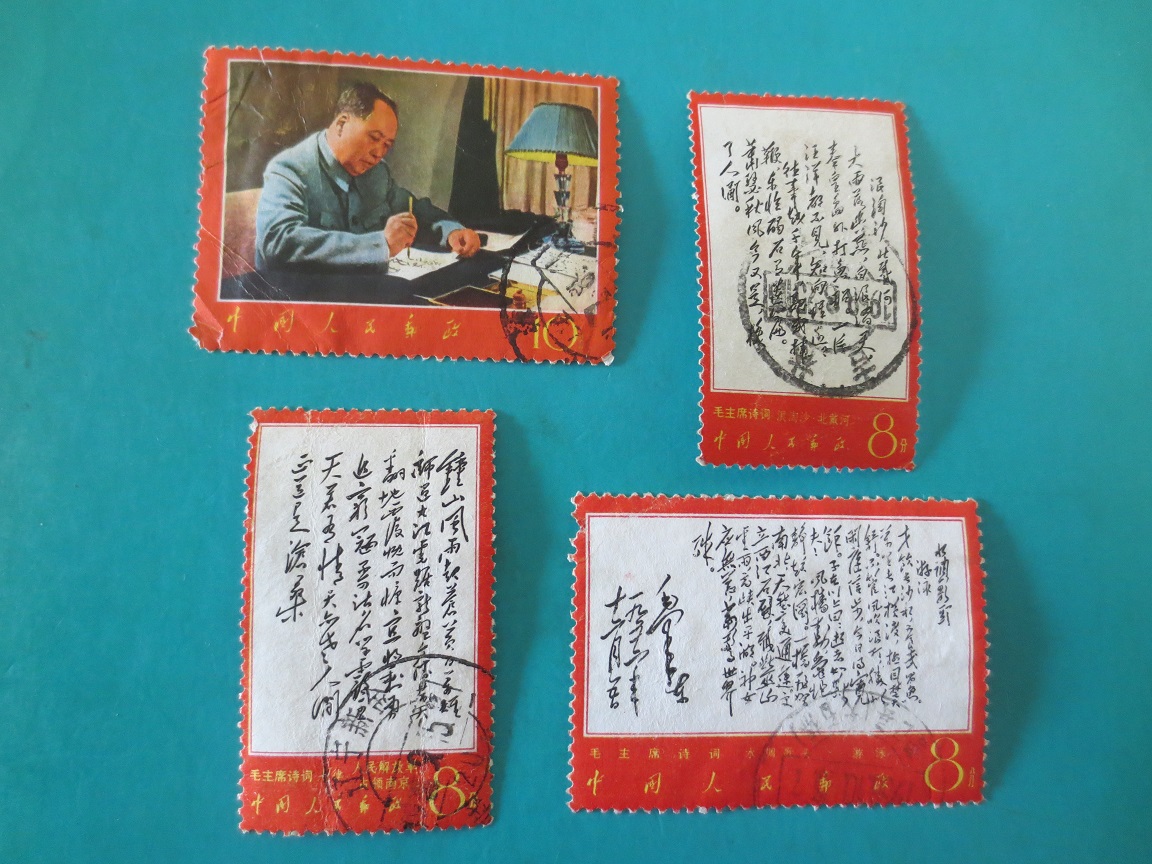 中国人民邮政
10
浪淘沙 北戴河
大雨落幽燕，白浪滔天
秦皇岛外打鱼船。一片
汪洋都不见，知向谁边。
往事越千年，魏武挥
鞭，东临碣石有遗篇。
萧瑟秋风今又是，换
了人间。
毛主席诗词 浪淘沙·北戴河
中国人民邮政
8分
钟山风雨起苍黄，百万雄
师过大江。虎踞龙盘今胜昔，
天翻地覆慨而慷。宜将剩勇
追穷寇，不可沽名学霸王。
天若有情天亦老，人间
正道是沧桑
毛主席诗词 七律 人民解放军
占领南京
中国人民邮政
8分
水调歌头
游泳
才饮长沙水，又食武昌鱼。
万里长江横渡，极目楚天
舒。不管风吹浪打，胜似
闲庭信步，今日得宽
馀。子在川上曰：逝者如斯
夫！风樯动，龟蛇
静，起宏图。一桥飞架
南北，天堑变通途。更
立西江石壁，截断巫山
云雨，高峡出平湖。神女
应无恙，当惊世界
殊。
毛泽东
一九五六年
十二月五日
毛主席诗词 水调歌头 游泳
中国人民邮政
8分